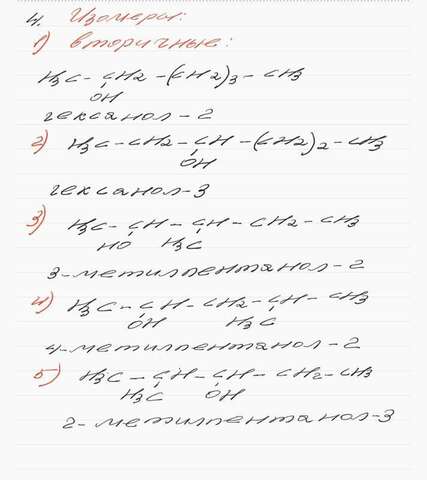 4. Изомеры:
1) вторичные:
H3C - CH2 - (CH2)3 - CH3
OH
гексанол - 2
2) H3C - CH2 - CH - (CH2)2 - CH3
OH
гексанол-3
3) H3C - CH - CH - CH2 - CH3
HO H3C
3-метилпентанол-2
4) H3C - CH - CH2 - CH - CH3
OH H3C
4-метилпентанол-2
5) H3C - CH - CH - CH2 - CH3
H3C OH
2-метилпентанол-3